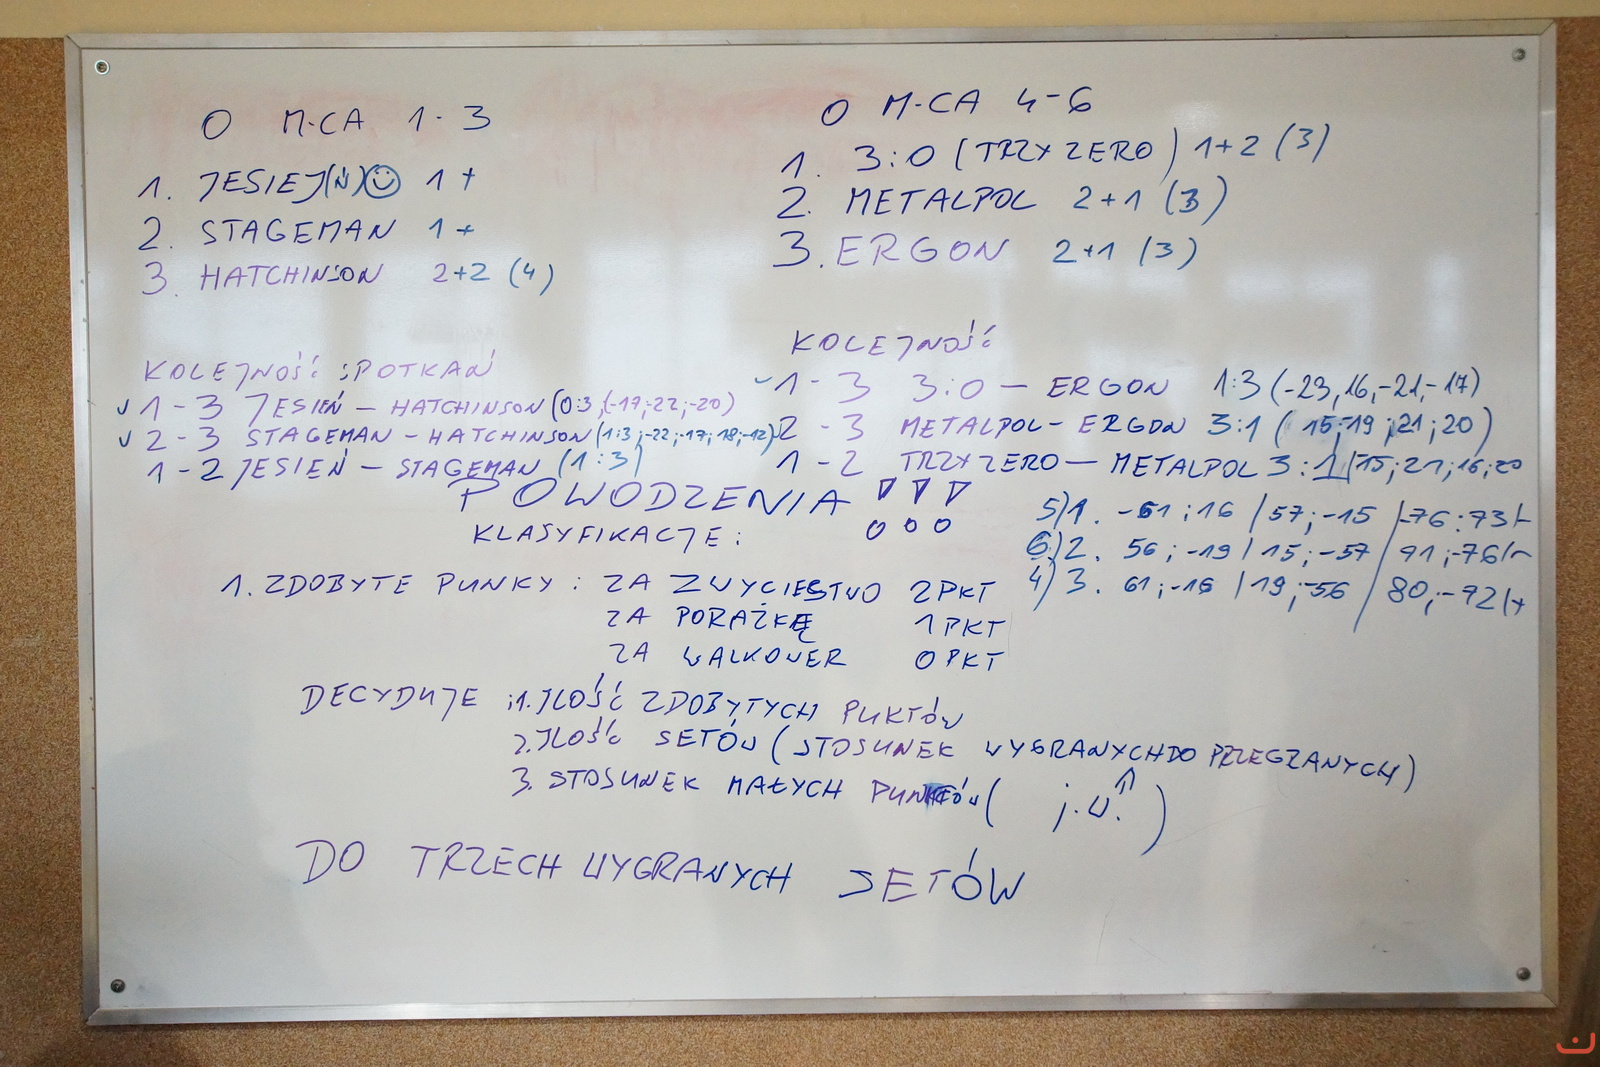 O M-CA 1-3
1. JESIEJ(Ń)☺ 1+
2. STAGEMAN 1+
3. HATCHINSON 2+2 (4)
KOLEJNOŚĆ SPOTKAŃ
1-3 JESIEŃ - HATCHINSON (0:3,(-17,-22,-20)
2-3 STAGEMAN - HATCHINSON (1:3;-22;-17;18;-12)
1-2 JESIEŃ - STAGEMAN (1:3)
O M-CA 4-6
1. 3:0 (TRZY ZERO) 1+2 (3)
2. METALPOL 2+1 (3)
3. ERGON 2+1 (3)
KOLEJNOŚĆ
1-3 3:0 - ERGON 1:3 (-23,16,-21,-17)
2-3 METALPOL - ERGON 3:1 (15;-19;21;20)
1-2 TRZY ZERO - METALPOL 3:1 (-15;21;16;20
5) 1. -61;16 / 57;-15 / -76:73
6) 2. 56;-19 / 15;-57 / 91;-76
4) 3. 61;-16 / 19;-56 / 80;-92
POWODZENIA !!!
KLASYFIKACJE:
1. ZDOBYTE PUNKY: ZA ZWYCIESTWO 2PKT
ZA PORAŻKĘ 1PKT
ZA WALKOWER 0PKT
DECYDUJE: 1. ILOŚĆ ZDOBYTYCH PUKTÓW
2. ILOŚĆ SETÓW (STOSUNEK WYGRANYCH DO PRZEGRANYCH)
3. STOSUNEK MAŁYCH PUNKTÓW ( j.w. )
DO TRZECH WYGRANYCH SETÓW